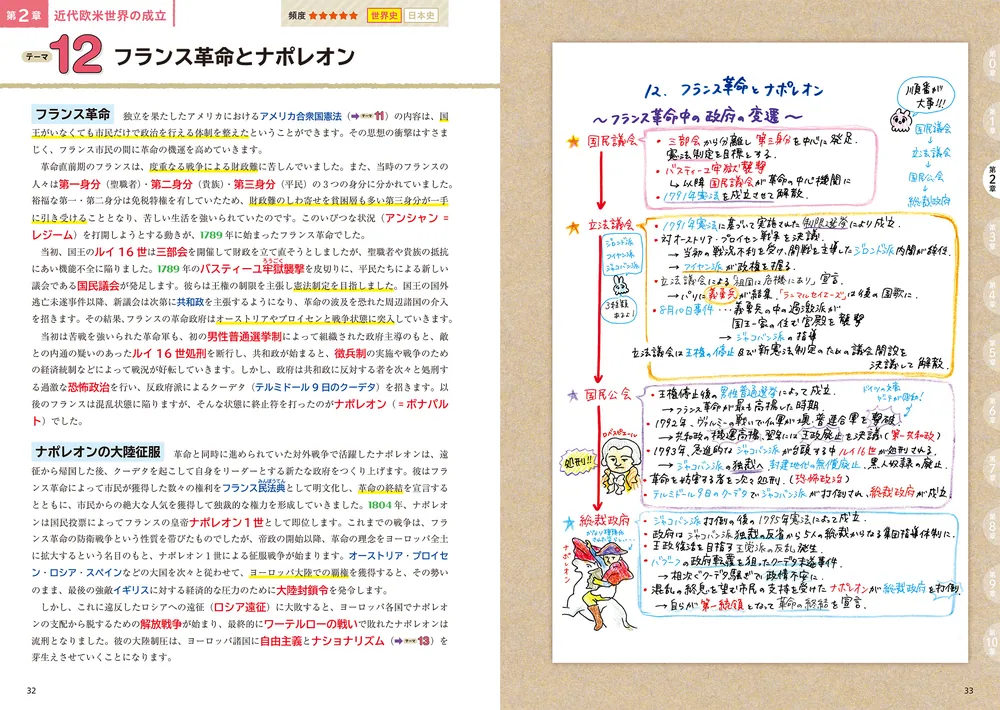 第2章
近代欧米世界の成立
頻度★★★★★
世界史
日本史
テーマ
12
フランス革命とナポレオン
フランス革命
独立を果たしたアメリカにおけるアメリカ合衆国憲法（➡テーマ11）の内容は、国
王がいなくても市民だけで政治を行える体制を整えたということができます。その思想の衝撃はすさま
じく、フランス市民の間に革命の機運を高めていきます。
革命直前期のフランスは、度重なる戦争による財政難に苦しんでいました。また、当時のフランスの
人々は第一身分（聖職者）・第二身分（貴族）・第三身分（平民）の３つの身分に分かれていました。
裕福な第一・第二身分は免税特権を有していたため、財政難のしわ寄せを貧困層も多い第三身分が一手
に引き受けることとなり、苦しい生活を強いられていたのです。このいびつな状況（アンシャン＝
レジーム）を打開しようとする動きが、1789年に始まったフランス革命でした。
当初、国王のルイ16世は三部会を開催して財政を立て直そうとしましたが、聖職者や貴族の抵抗
にあい機能不全に陥りました。1789年のバスティーユ牢獄襲撃を皮切りに、平民たちによる新しい
ろうごく
議会である国民議会が発足します。彼らは王権の制限を主張し憲法制定を目指しました。国王の国外
逃亡未遂事件以降、新議会は次第に共和政を主張するようになり、革命の波及を恐れた周辺諸国の介入
を招きます。その結果、フランスの革命政府はオーストリアやプロイセンと戦争状態に突入していきます。
当初は苦戦を強いられた革命軍も、初の男性普通選挙制によって組織された政府主導のもと、敵
との内通の疑いのあったルイ16世処刑を断行し、共和政が始まると、徴兵制の実施や戦争のため
の経済統制などによって戦況が好転していきます。しかし、政府は共和政に反対する者を次々と処刑す
る過激な恐怖政治を行い、反政府派によるクーデタ（テルミドール９日のクーデタ）を招きます。以
後のフランスは混乱状態に陥りますが、そんな状態に終止符を打ったのがナポレオン（＝ボナパル
ト）でした。
ナポレオンの大陸征服
革命と同時に進められていた対外戦争で活躍したナポレオンは、遠
征から帰国した後、クーデタを起こして自身をリーダーとする新たな政府をつくり上げます。彼はフラ
ンス革命によって市民が獲得した数々の権利をフランス民法典として明文化し、革命の終結を宣言する
みんぽうてん
とともに、市民からの絶大な人気を獲得して独裁的な権力を形成していきました。1804年、ナポレオ
ンは国民投票によってフランスの皇帝ナポレオン１世として即位します。これまでの戦争は、フラン
ス革命の防衛戦争という性質を帯びたものでしたが、帝政の開始以降、革命の理念をヨーロッパ全土
に拡大するという名目のもと、ナポレオン１世による征服戦争が始まります。オーストリア・プロイセ
ン・ロシア・スペインなどの大国を次々と従わせて、ヨーロッパ大陸での覇権を獲得すると、その勢い
のまま、最後の強敵イギリスに対する経済的な圧力のために大陸封鎖令を発令します。
しかし、これに違反したロシアへの遠征（ロシア遠征）に大敗すると、ヨーロッパ各国でナポレオ
ンの支配から脱するための解放戦争が始まり、最終的にワーテルローの戦いで敗れたナポレオンは
流刑となりました。彼の大陸制圧は、ヨーロッパ諸国に自由主義とナショナリズム（➡テーマ13）を
芽生えさせていくことになります。
32
12. フランス革命とナポレオン
～フランス革命中の政府の変遷～
順番が
大事!!!
国民議会
↓
立法議会
↓
国民公会
↓
総裁政府
★国民議会
・三部会から分離し第三身分を中心に発足。
憲法制定を目標とする。
・バスティーユ牢獄襲撃
→以降 国民議会が革命の中心機関に
・1791年憲法を成立させて解散。
★立法議会
ジロンド派
フイヤン派
ジャコバン派
・1791年憲法に基づいて実施された制限選挙により成立。
・対オーストリア・プロイセン戦争を決議。
→当初の戦況不利を受け、開戦を主導したジロンド派内閣が辞任。
→フイヤン派が政権を握る。
・立法議会による「祖国は危機にあり」宣言。
→パリに義勇兵が結集。「ラ=マルセイエーズ」は後の国歌に。
・8月10日事件…義勇兵の中の過激派が
国王一家の住む宮殿を襲撃
→ジャコバン派の指導
立法議会は王権の停止および新憲法制定のための議会開設を
決議して解散。
★国民公会
・王権停止後の男性普通選挙によって成立。
→フランス革命が最も高揚した時期。
・1792年、ヴァルミーの戦いで仏軍が墺・普連合軍を撃破。
→共和政の機運高揚、翌年には王政廃止を決議（第一共和政）
・1793年、急進的なジャコバン派が台頭する中ルイ16世が処刑される。
→ジャコバン派の独裁へ 封建地代の無償廃止、黒人奴隷の廃止。
・革命を妨害する者を次々処刑。（恐怖政治）
・テルミドール9日のクーデタでジャコバン派が打倒され、総裁政府が成立。
ロベスピエール
処刑!!
★総裁政府
ナポレオン
・ジャコバン派打倒の後の1795年憲法によって成立。
・政府はジャコバン派独裁の反省から5人の総裁からなる集団指導体制に。
王政復活を目指す王党派の反乱発生。
・バブーフの政府転覆を狙ったクーデタ未遂事件。
→相次ぐクーデタ騒ぎで政情不安に。
・混乱の終息を望む市民の支持を受けたナポレオンが総裁政府を打倒。
→自らが第一統領となって革命の終結を宣言。
第0章
第1章
第2章
第3章
第4章
第5章
第6章
第7章
第8章
第9章
第10章
33